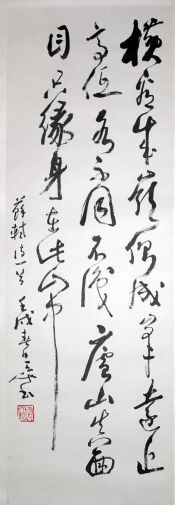 横看成嶺側成峯遠近
高低各不同不識廬山真面
目只緣身在此山中
蘇軾詩一首 壬戌春日書